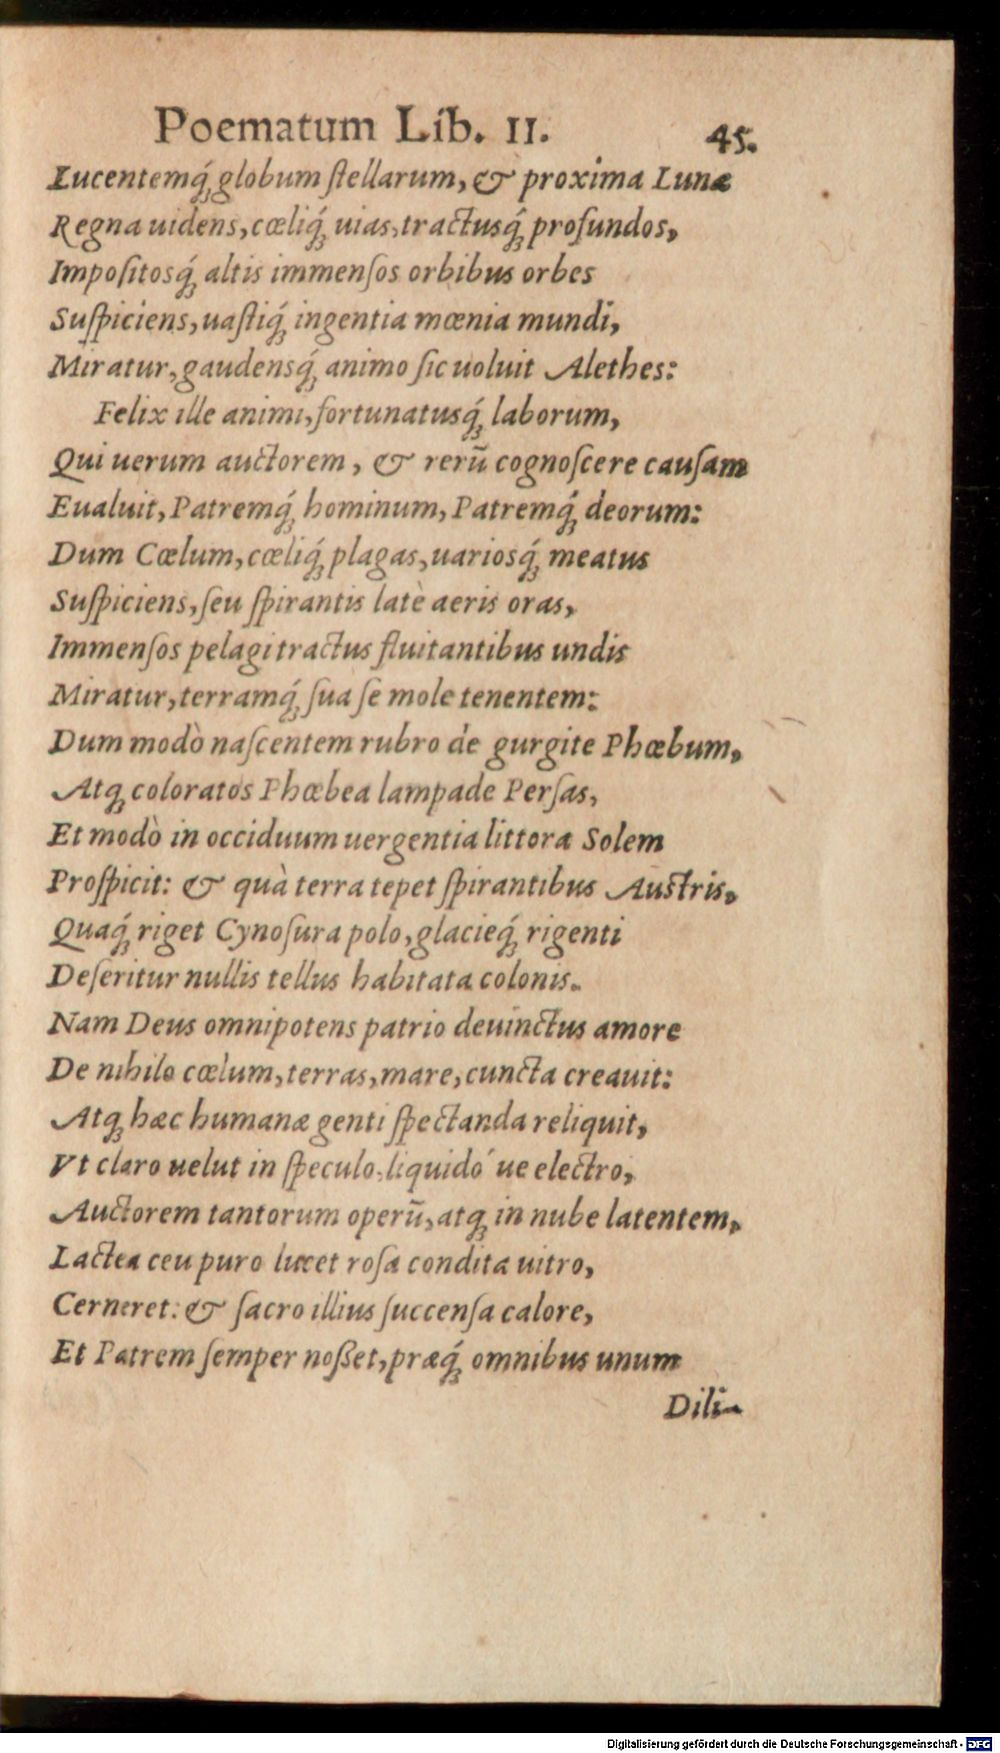 Poematum Lib. II. 45.
Lucentemq́; globum ſtellarum, & proxima Lunæ
Regna uidens, cœliq́; uias, tractusq́; profundos,
Impoſitosq́; altis immenſos orbibus orbes
Suſpiciens, uaſtiq́; ingentia mœnia mundi,
Miratur, gaudensq́; animo ſic uoluit Alethes:
Felix ille animi, fortunatusq́; laborum,
Qui uerum auctorem, & rerũ cognoſcere cauſam
Eualuit, Patremq́; hominum, Patremq́; deorum:
Dum Cœlum, cœliq́; plagas, uariosq́; meatus
Suſpiciens, ſeu ſpirantis latè aeris oras,
Immenſos pelagi tractus fluitantibus undis
Miratur, terramq́; ſua ſe mole tenentem:
Dum modò naſcentem rubro de gurgite Phœbum,
Atq; coloratos Phœbea lampade Perſas,
Et modò in occiduum uergentia littora Solem
Proſpicit: & quà terra tepet ſpirantibus Auſtris,
Quaq́; riget Cynoſura polo, glacieq́; rigenti
Deſeritur nullis tellus habitata colonis.
Nam Deus omnipotens patrio deuinctus amore
De nihilo cœlum, terras, mare, cuncta creauit:
Atq; hæc humanæ genti ſpectanda reliquit,
Vt claro uelut in ſpeculo, liquido´ue electro,
Auctorem tantorum operũ, atq; in nube latentem,
Lactea ceu puro lucet roſa condita uitro,
Cerneret: & ſacro illius ſuccenſa calore,
Et Patrem ſemper noßet, præq́; omnibus unum
Dili-
Digitalisierung gefördert durch die Deutsche Forschungsgemeinschaft - DFG